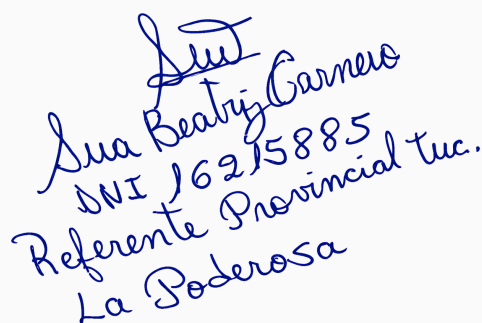 Sua Beatriz Carnero
DNI 16215885
Referente Provincial Tuc.
La Poderosa